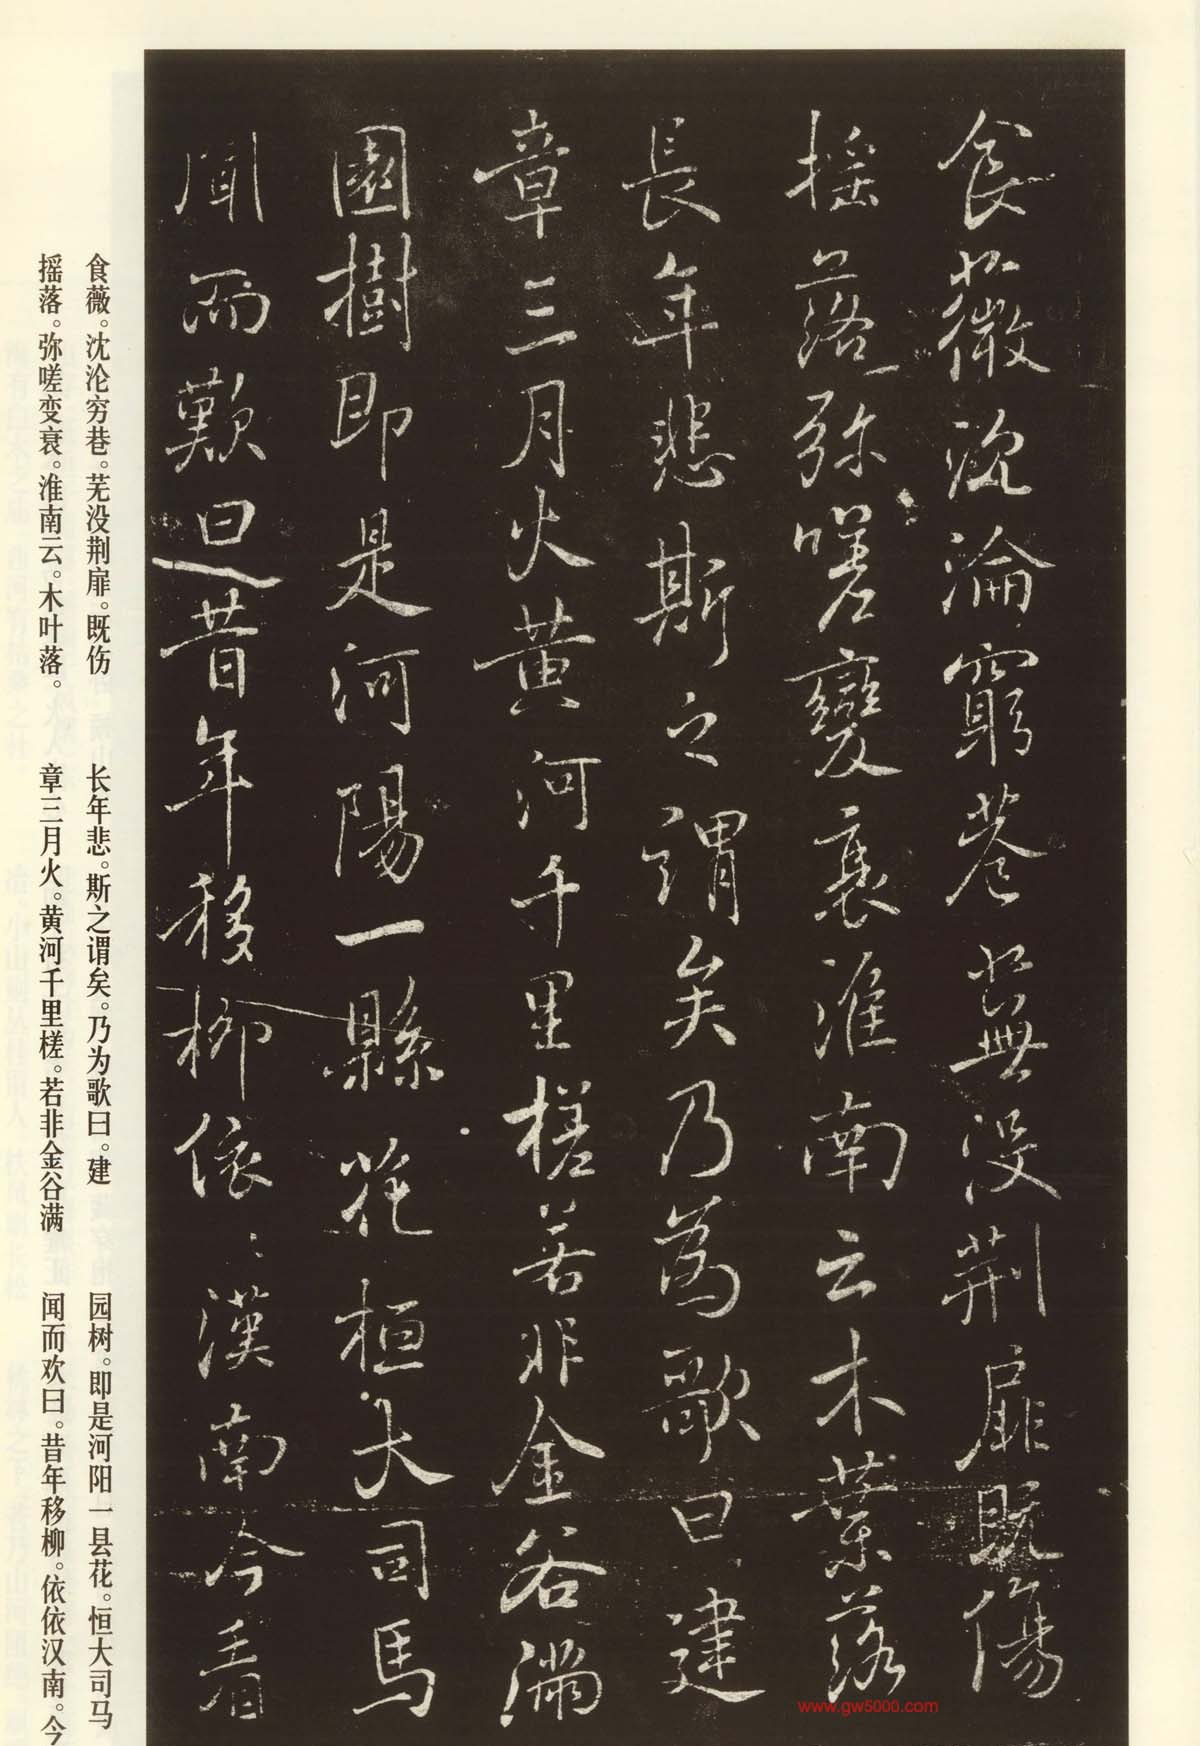 食薇沈淪窮巷蕪没荆扉既傷
揺落弥嗟變衰淮南云木葉落
長年悲斯之謂矣乃為歌曰建
章三月火黄河千里槎若非金谷満
園樹即是河陽一縣花桓大司馬
聞而歎曰昔年移柳依〻漢南今看
食薇。沈沦穷巷。芜没荆扉。既伤
摇落。弥嗟变衰。淮南云。木叶落。
长年悲。斯之谓矣。乃为歌曰。建
章三月火。黄河千里槎。若非金谷满
园树。即是河阳一县花。恒大司马
闻而欢曰。昔年移柳。依依汉南。今
www.gw5000.com